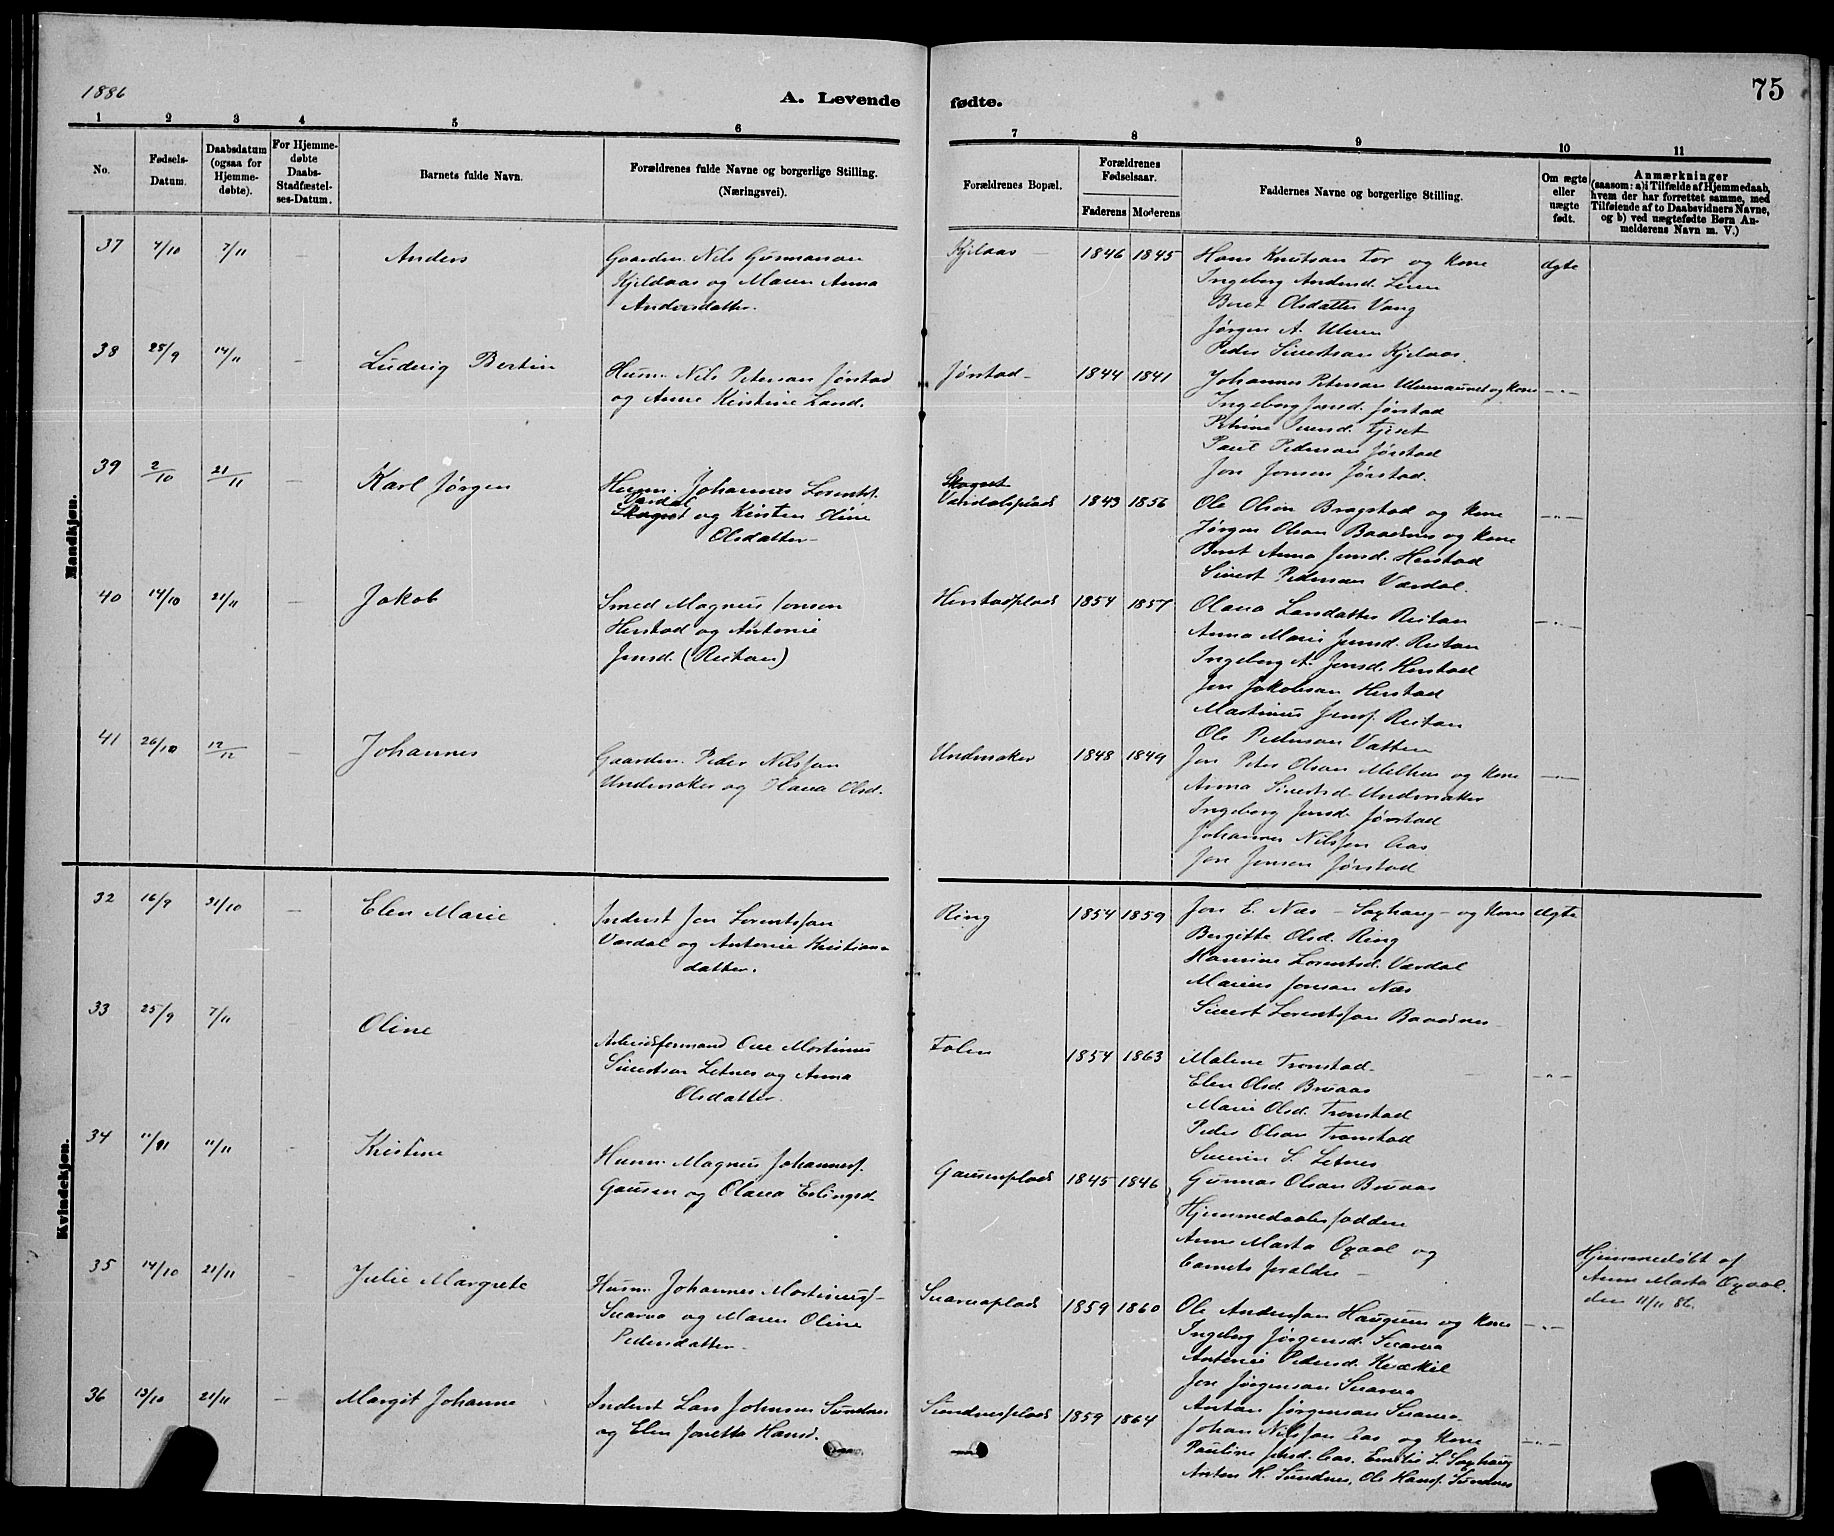 1886
A. Levende fødte.
75
1 2 3 4 5 6 7 8 9 10 11
No.
Fødsels-Datum.
Daabsdatum (ogsaa for Hjemme-døbte).
For Hjemme-døbte Daabs-Stadfæstel-ses-Datum.
Barnets fulde Navn.
Forældrenes fulde Navne og borgerlige Stilling. (Næringsvei).
Forældrenes Bopæl.
Forældrenes Fødselsaar.
Faderens Moderens
Faddernes Navne og borgerlige Stilling.
Om ægte eller uægte født.
Anmærkninger
(saasom: a) i Tilfælde af Hjemmedaab, hvem der har forrettet samme, med Tilføiende af to Daabsvidners Navne, og b) ved uægtefødte Børn An-melderens Navn m. V.)
Mandkjøn.
37 4/10 7/11 Anders
Gaardm. Nils Gunnarson
Kjeldaas og Maren Anna
Andersdatter.
Kjelaas 1846 1845
Hans Knutsen For og Kone
Ingeborg Andersd.
Beret Olsdatter Vang
Jørgen A. Ulven
Peder Sivertsen Kjelaas.
ægte
38 25/9 14/11 Ludvig Bertin
Husm. Nils Petersen Jørstad
og Anne Kirstine Larsd.
Jørstad 1844 1841
Johannes Petersen Ulvenaunet og Kone
Ingeborg Jensd. Jørstad
Paul Pedersen Jørstad
Jon Jonsen Jørstad.
-"-
39 2/10 21/11 Karl Jørgen
Husm. Johannes Lorents.
Værdal
Skogset og Kirsten Oline
Olsdatter
Skogset
Værdalsplads 1843 1856
Ole Olsen Bragstad og Kone
Jørgen Olsen Baadsnes og Kone
Beret Anna Jensd. Herstad
Sivert Pedersen Værdal.
-"-
40 14/10 21/11 Jakob
Smed Magnus Jonsen
Herstad og Antonie
Jensd. (Reitan)
Herstadplads 1854 1857
Olava Larsdatter Reitan
Anna Marie Jensd. Reitan
Ingeborg A. Jensd. Herstad
Jon Jakobsen Herstad
Martinus Jensf. Reitan
Ole Pedersen Vatten
-"-
41 26/10 12/12 Johannes
Gaardm. Peder Nilssen
Undersaker og Olava Olsd.
Undersaker 1848 1849
Jon Peter Olsen Melhus og Kone
Anna Sivertsd. Undersaker
Ingeborg Jensd. Jørstad
Johannes Nilssen Aas
Jon Jensen Jørstad
-"-
Kvindekjøn.
32 16/9 31/10 Elen Marie
Inderst Jon Lorentssen
Værdal og Antonie Kristians-
datter.
Ring 1854 1859
Jon E. Næs - Saxhaug - og Kone
Bergitte Olsd. Ring
Hansine Lorentsd. Værdal
Marius Jonsen Næs
Sivert Lorentssen Baadsnes
ægte
33 25/9 7/11 Oline
Arbeidsformand Ole Martinus
Sivertsen Letnes og Anna
Olsdatter.
Folen 1854 1863
Malene Tronstad
Elen Olsd. Bruaas
Marie Olsd. Tronstad
Peder Olsen Tronstad
Severin S. Letnes
Gunnar Olsen Bruaas
-"-
34 11/11 11/11 Kristine
Husm. Magnus Johannesf.
Gausen og Olava Erlingsd.
Gausenplads 1845 1846
Hjemmedaabsfaddere
Anne Marta Oxaal og
Barnets forældre
Hjemmedøbt af
Anne Marta Oxaal.
den 11/11 86.
35 14/10 21/11 Julie Margrete
Husm. Johannes Martinusf.
Snarva og Maren Oline
Pedersdatter.
Snarvaplads 1859 1860
Ole Anderssen Haugum og Kone
Ingeborg Jørgensd. Snarva
Antonie Pedersd. Kvækil
Jon Jørgensen Snarva
Anton Jørgensen Snarva
-"-
36 13/10 21/11 Margit Johanne
Inderst Lars Johnsen Sundnes
og Elen Jonetta Hansd.
Sundnesplads 1859 1864
Johan Nilssen Aas og Kone
Pauline Johsd. Aas. Emilie L. Saxhaug
Anton H. Sundnes, Ole Hansf. Sundnes
-"-